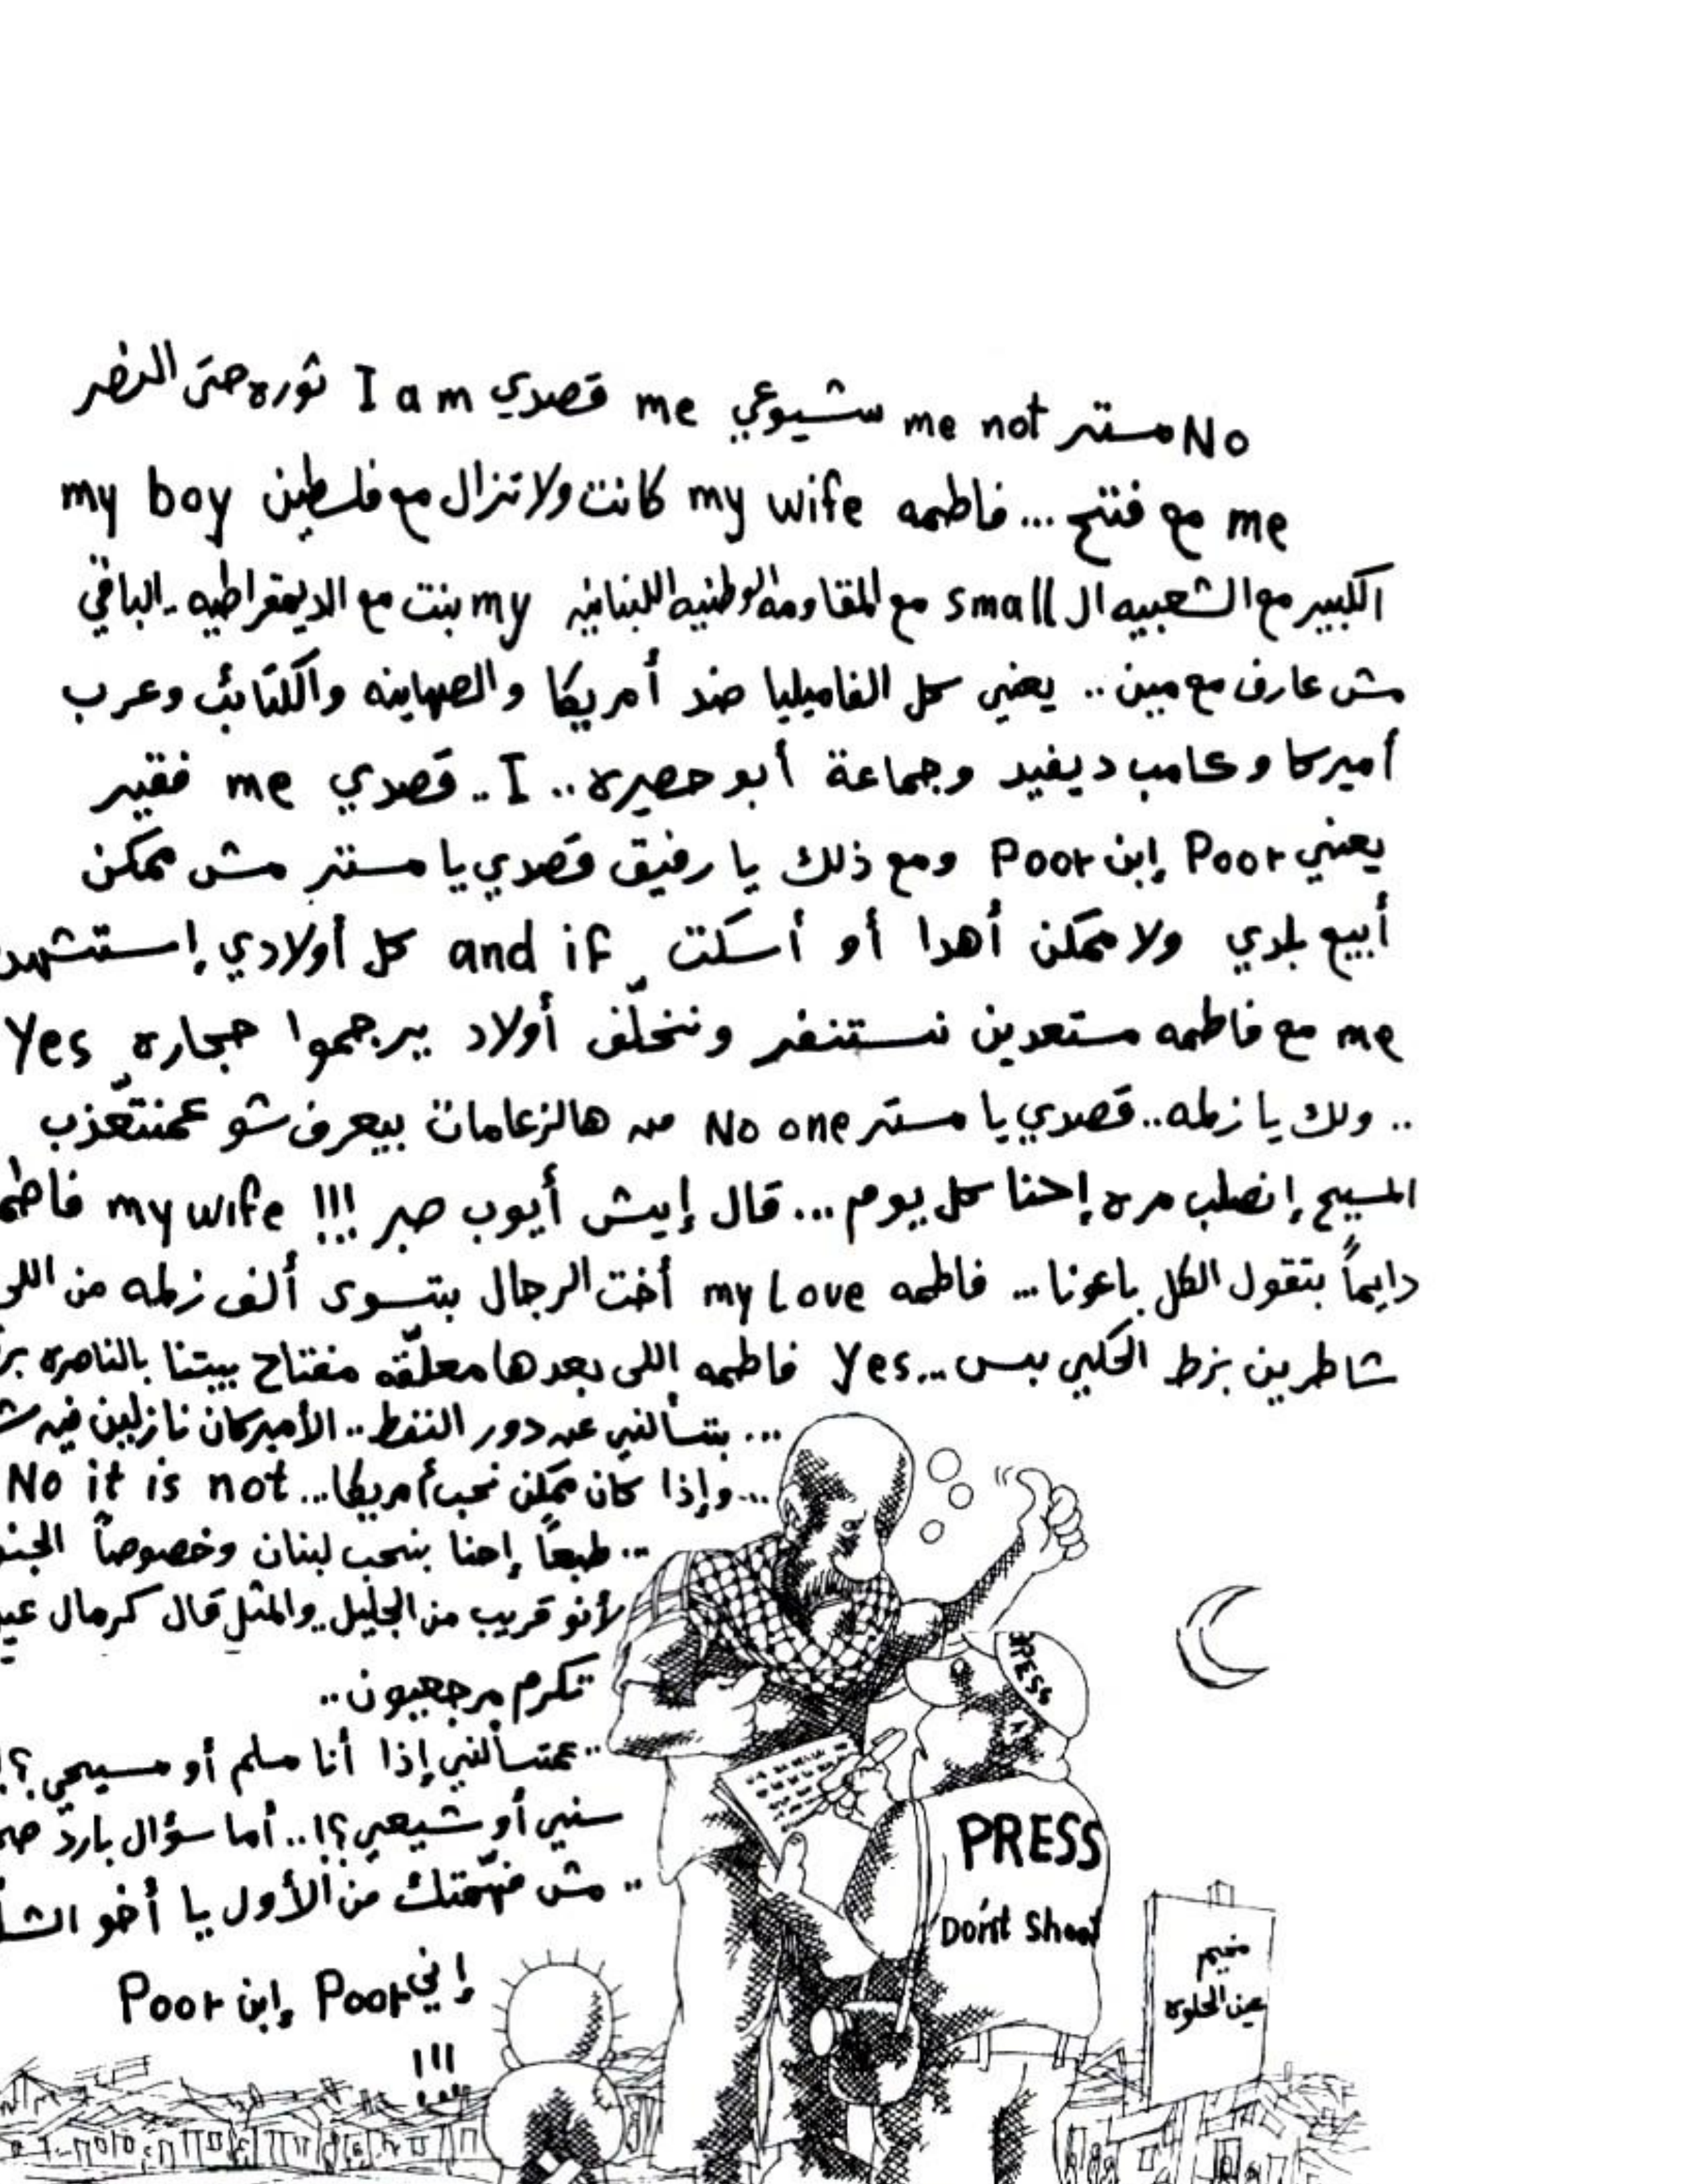 No مستر me not شيوعي me قصدي I am ثوره حتى النصر
me مع فتح ... فاطمه my wife كانت ولا تزال مع فلسطين my boy
الكبير مع الشعبيه ال small مع المقاومه الوطنيه اللبنانيه my بنت مع الديمقراطيه .. الباقي
مش عارف مع مين .. يعني كل الفاميليا ضد أمريكا والصهاينه والكتائب وعرب
أميركا وكامب ديفيد وجماعة أبو حصيره .. I .. قصدي me فقير
يعني Poor إبن Poor ومع ذلك يا رفيق قصدي يا مستر مش ممكن
أبيع بلدي ولا ممكن أهدا أو أسكت and if كل أولادي إستشهد
me مع فاطمه مستعدين نستنفر ونخلّف أولاد يرجموا حجاره Yes
.. ولك يا زلمه .. قصدي يا مستر No one من هالزعامات بيعرف شو عمنتعّذب
المسيح إنصلب مره إحنا كل يوم ... قال إيش أيوب صبر !!! my wife
دايماً بتقول الكل باعونا ... فاطمه my Love أخت الرجال بتسوى ألف زلمه من اللي
شاطرين بزط الحكي بس ... Yes فاطمه اللي بعدها معلّقه مفتاح بيتنا بالناصره
... بتسألني عن دور النفط .. الأميركان نازلين فيه
... وإذا كان ممكن نحب أمريكا ... No it is not
... طبعاً إحنا بنحب لبنان وخصوصاً
لأنو قريب من الجليل .. والمثل قال كرمال
تكرم مرجعيون ..
.. عمتسألني إذا أنا مسلم أو مسيحي ؟!
سني أو شيعي ؟! .. أما سؤال بارد
.. مش فهّمتك من الأول يا أخو
إني Poor إبن Poor
!!!
PRESS
PRESS
Don't Shoot
مخيم
عين الحلوه